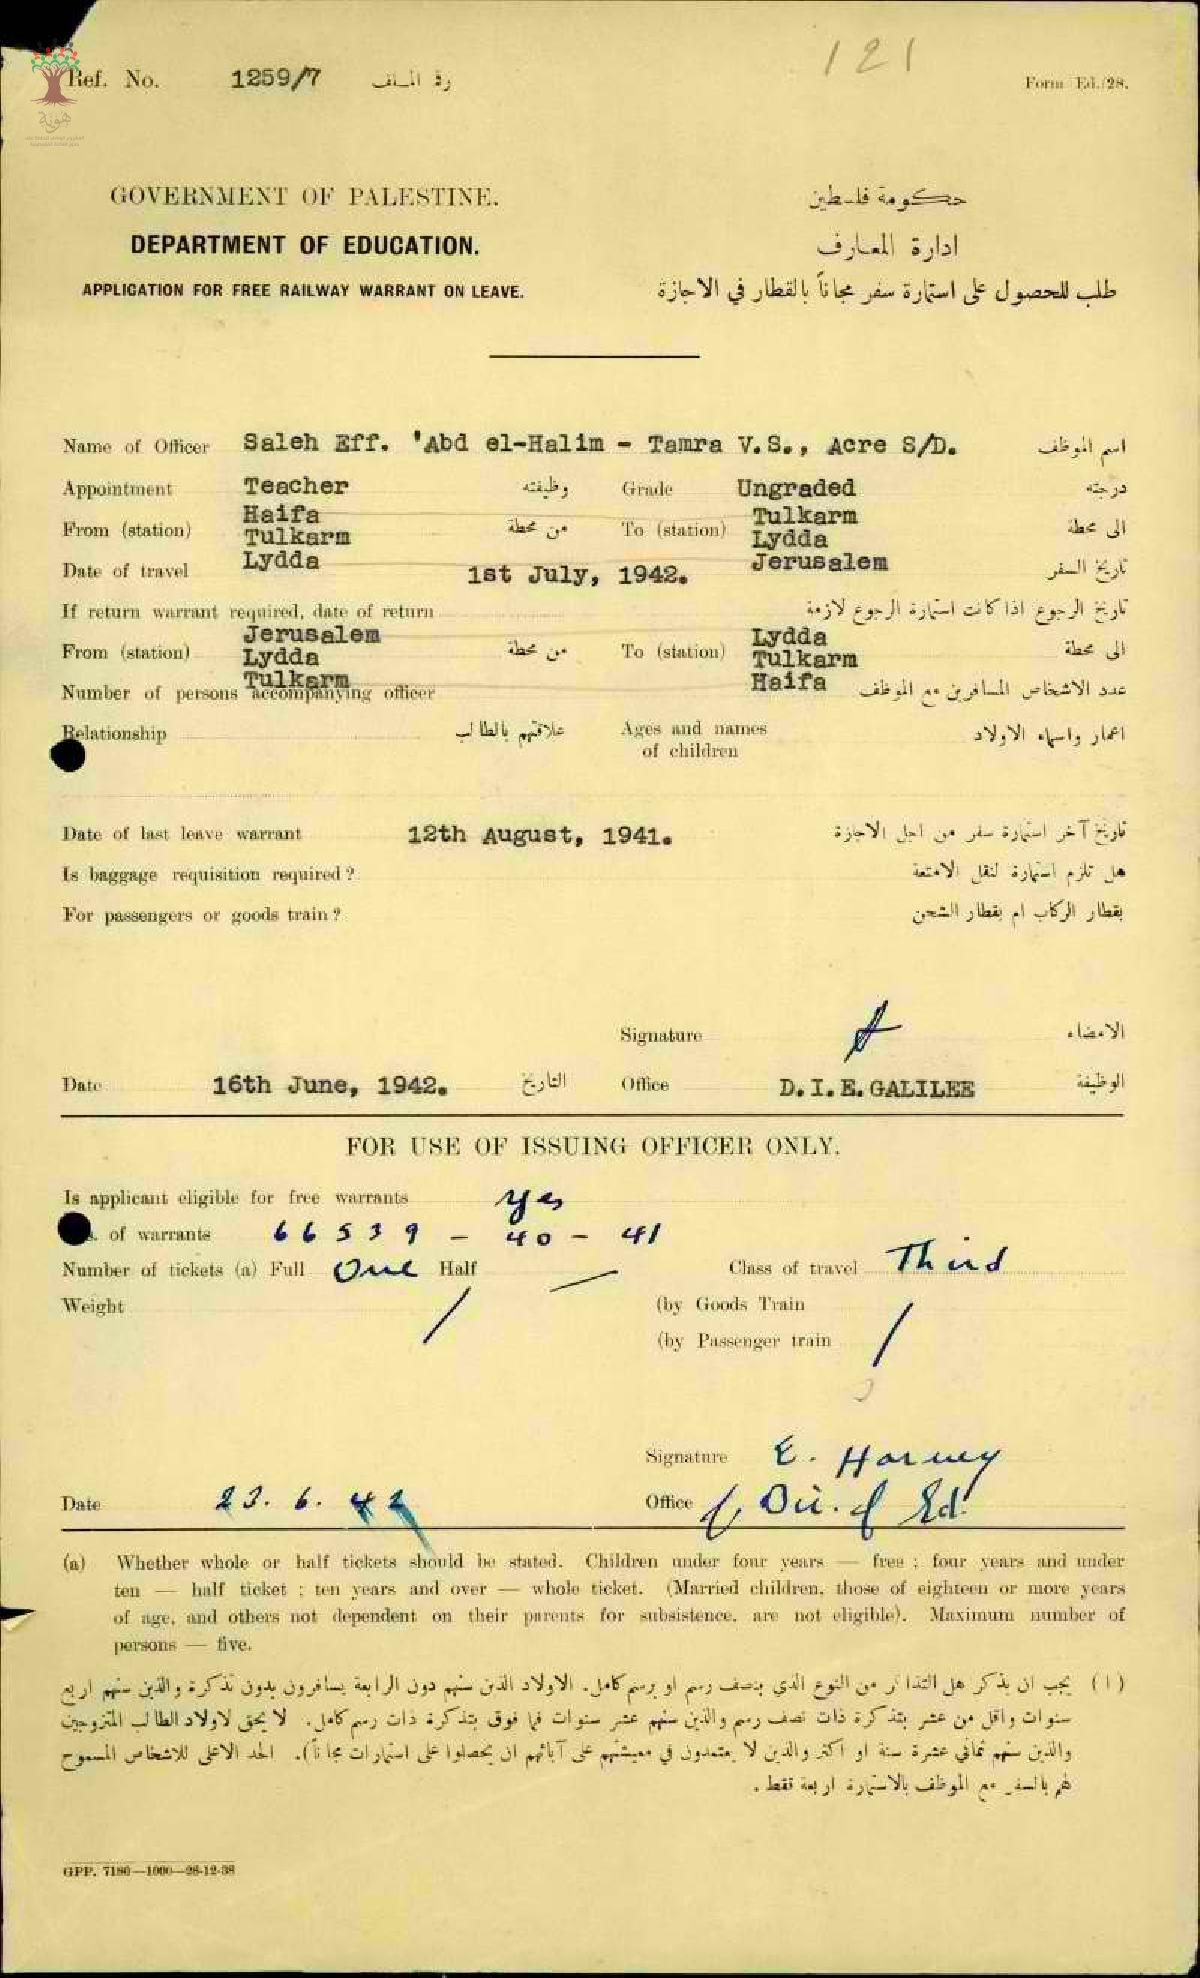 121
Ref. No. 1259/7 رقم الملف Form Ed./28.
هوية
GOVERNMENT OF PALESTINE. حكومة فلسطين
DEPARTMENT OF EDUCATION. ادارة المعارف
APPLICATION FOR FREE RAILWAY WARRANT ON LEAVE. طلب للحصول على استمارة سفر مجاناً بالقطار في الاجازة
Name of Officer Saleh Eff. 'Abd el-Halim - Tamra V.S., Acre S/D. اسم الموظف
Appointment Teacher وظيفته Grade Ungraded درجته
Haifa Tulkarm
From (station) Tulkarm من محطة To (station) Lydda الى محطة
Lydda Jerusalem
Date of travel 1st July, 1942. تاريخ السفر
If return warrant required, date of return تاريخ الرجوع اذا كانت استمارة الرجوع لازمة
Jerusalem Lydda
From (station) Lydda من محطة To (station) Tulkarm الى محطة
Tulkarm Haifa
Number of persons accompanying officer عدد الاشخاص المسافرين مع الموظف
Relationship علاقتهم بالطالب Ages and names of children اعمار واسماء الاولاد
Date of last leave warrant 12th August, 1941. تاريخ آخر استمارة سفر من اجل الاجازة
Is baggage requisition required? هل تلزم استمارة لنقل الامتعة
For passengers or goods train? بقطار الركاب ام بقطار الشحن
Signature الامضاء
Date 16th June, 1942. التاريخ Office D.I.E. GALILEE الوظيفة
FOR USE OF ISSUING OFFICER ONLY.
Is applicant eligible for free warrants yes
of warrants 66539 - 40 - 41
Number of tickets (a) Full One Half — Class of travel Third
Weight / (by Goods Train
(by Passenger train /
Signature E. Harvey
Date 23. 6. 42 Office f. Dir. of Ed.
(a) Whether whole or half tickets should be stated. Children under four years — free ; four years and under
ten — half ticket ; ten years and over — whole ticket. (Married children, those of eighteen or more years
of age, and others not dependent on their parents for subsistence, are not eligible). Maximum number of
persons — five.
(ا) يجب ان يذكر هل التذاكر من النوع الذي بنصف رسم او برسم كامل. الاولاد الذين سنهم دون الرابعة يسافرون بدون تذكرة والذين سنهم اربع
سنوات واقل من عشر بتذكرة ذات نصف رسم والذين سنهم عشر سنوات فما فوق بتذكرة ذات رسم كامل. لا يحق لاولاد الطالب المتزوجين
والذين سنهم ثماني عشرة سنة او اكثر والذين لا يعتمدون في معيشتهم على آبائهم ان يحصلوا على استمارات مجاناً). الحد الاعلى للاشخاص المسموح
لهم بالسفر مع الموظف بالاستمارة اربعة فقط.
GPP. 7180—1000—28-12-38